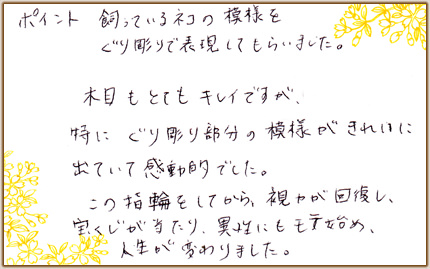 ポイント 飼っているネコの模様を
ぐり彫りで表現してもらいました。
木目もとてもキレイですが、
特にぐり彫り部分の模様がきれいに
出ていて感動的でした。
この指輪をしてから、視力が回復し、
宝くじが当たり、異性にもモテ始め、
人生が変わりました。